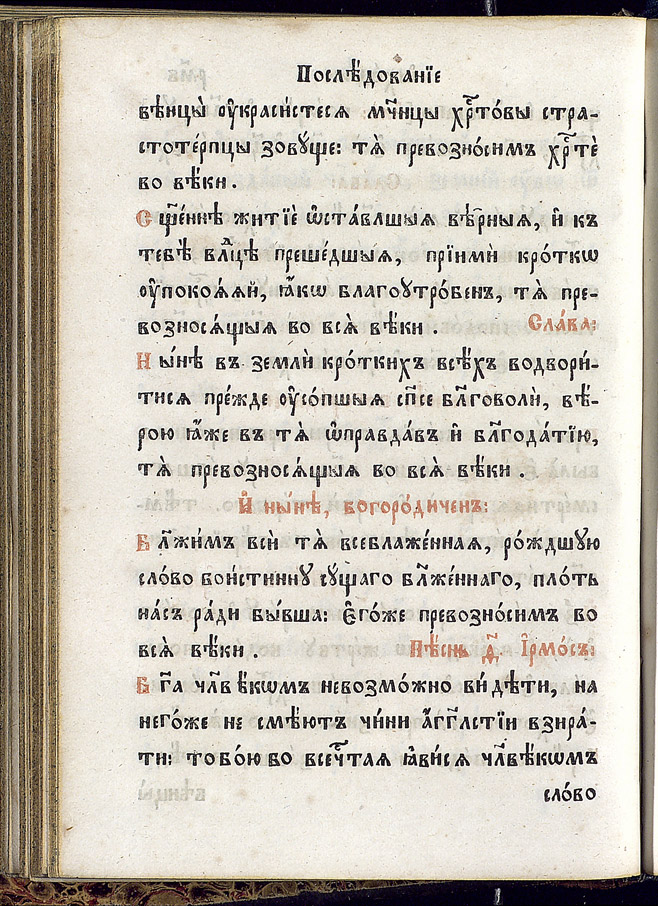 Послѣ́дованїе
вѣнцы̀ ᲂу҆краси́стесѧ мч҃нцы хрⷭ҇то́вы стра-
стоте́рпцы зовꙋ́ще: тѧ̀ превозно́симъ хрⷭ҇тѐ
во вѣ́ки.
Сщ҃е́ннѣ житїѐ ѡ҆ста́влшыѧ вѣ̑рныѧ, и҆ къ
тебѣ̀ влⷣцѣ преше́дшыѧ, прїимѝ кро́ткѡ
ᲂу҆покоѧ́ѧй, ꙗ҆́кѡ благоꙋтро́бенъ, тѧ̀ пре-
возносѧ́щыѧ во всѧ̑ вѣ́ки. Сла́ва:
Ны́нѣ въ землѝ кро́ткихъ всѣ́хъ водвори́-
тисѧ пре́жде ᲂу҆со́пшыѧ сп҃се бл҃говолѝ, вѣ́-
рою ꙗ҆̀же въ тѧ̀ ѡ҆правда́въ и҆ бл҃года́тїю,
тѧ̀ превозносѧ́щыѧ во всѧ̑ вѣ́ки.
И҆ ны́нѣ, богоро́диченъ:
Бл҃жи́мъ всѝ тѧ̀ всеблаже́ннаѧ, ро́ждшую
сло́во вои́стиннꙋ сꙋ́щаго бл҃же́ннаго, пло́ть
на́съ ра́ди бы́вша: є҆го́же превозно́симъ во
всѧ̑ вѣ́ки. Пѣ́снь д҃. І҆рмо́съ:
Бг҃а чл҃вѣ́кѡмъ невозмо́жно ви́дѣти, на
него́же не смѣ́ютъ чи́ни а҆́гг҃лстїи взира́-
ти: тобо́ю бо всечⷭ҇таѧ ꙗ҆ви́сѧ чл҃вѣ́кѡмъ
сло́во